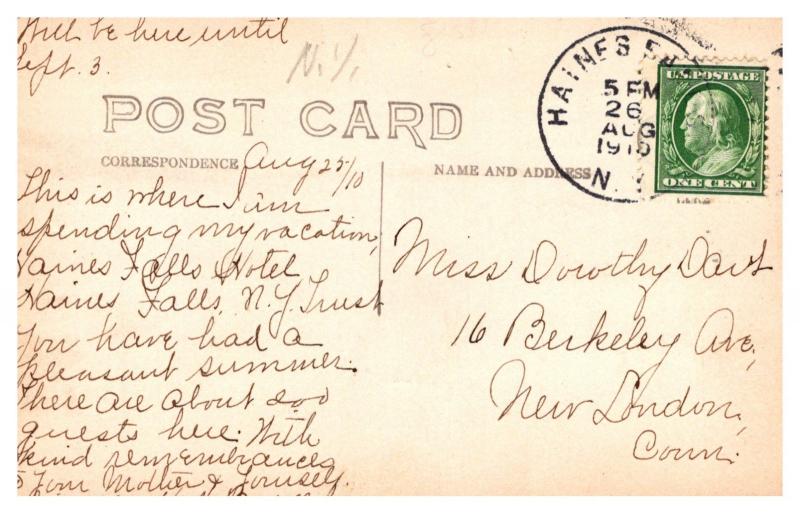 Will be here until
Sept. 3.
N.Y.
POST CARD
HAINES FALLS
5 PM
26
AUG
1910
N.
U.S. POSTAGE
ONE CENT
CORRESPONDENCE
NAME AND ADDRESS
Aug 25/10
This is where I am
spending my vacation,
Haines Falls Hotel
Haines Falls, N.Y. Trust
you have had a
pleasant summer.
There are about 200
guests here. With
kind remembrances
to your Mother & yourself.
Miss Dorothy Dart
16 Berkeley Ave,
New London,
Conn.